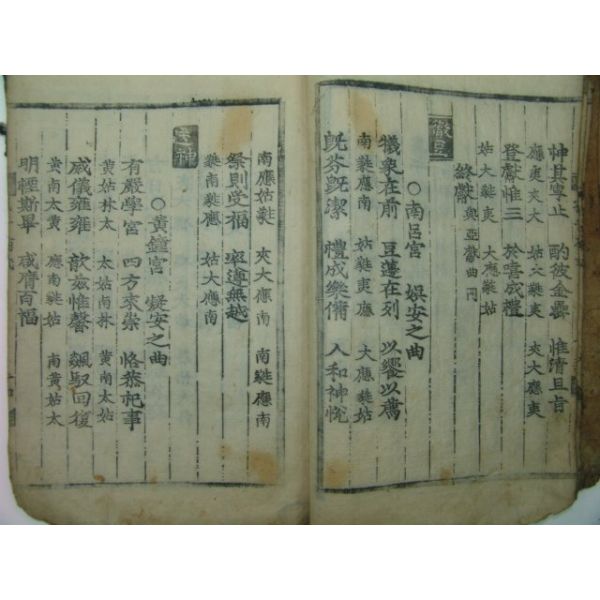 神其寧止 酌彼金罍 惟清且旨
應夷夾大 姑大蕤夷 夾大應夷
登獻惟三 於嘻成禮
姑大蕤夷 大應蕤姑
終獻 與亞獻曲同
徹豆
○南呂宮 娛安之曲
犧象在前 豆籩在列 以饗以薦
南蕤應南 姑蕤夷應 大應蕤姑
旣芬旣潔 禮成樂備 人和神悅
南應姑蕤 夾大應南 南蕤應南
祭則受福 率遵無越
蕤南蕤應 姑大應南
送神
○黃鐘宮 凝安之曲
有嚴學宮 四方來崇 恪恭祀事
黃姑林太 太姑南林 黃南太姑
威儀雍雍 歆玆惟馨 飆馭回復
黃南太黃 應南蕤姑 南黃姑太
明禋斯畢 咸膺百福